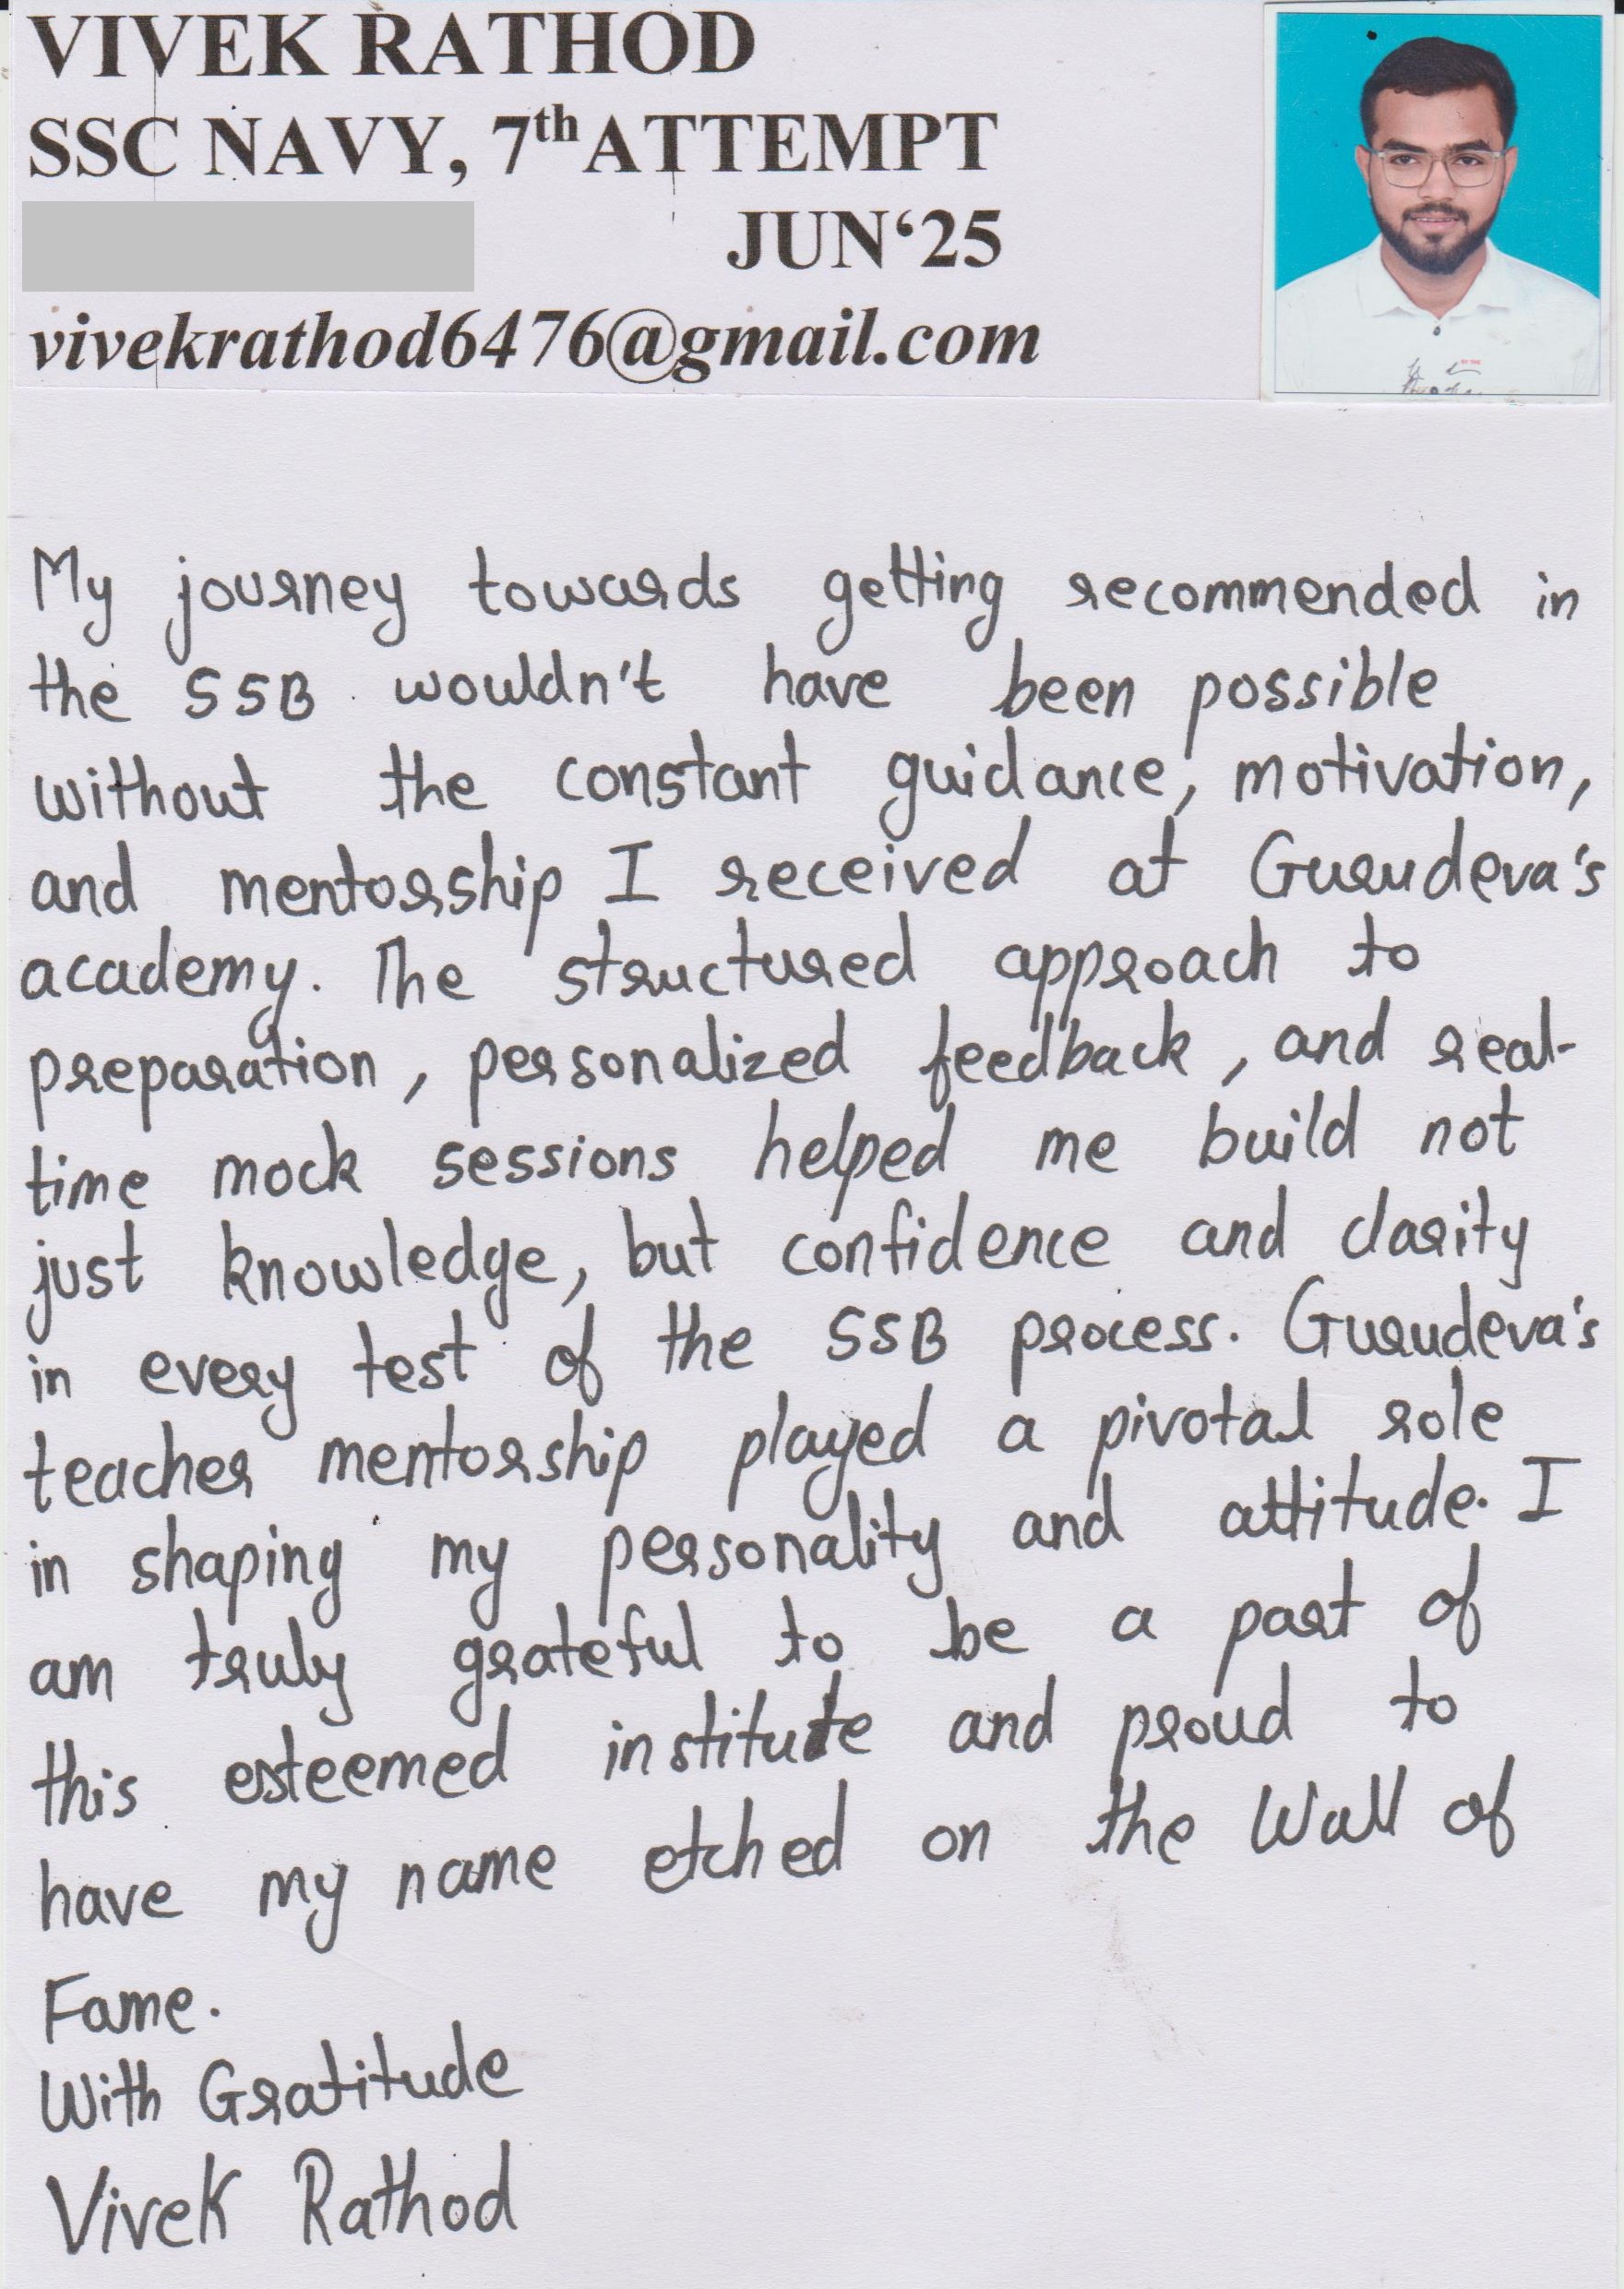 VIVEK RATHOD
SSC NAVY, 7th ATTEMPT
JUN‘25
vivekrathod6476@gmail.com
My journey towards getting recommended in
the SSB wouldn't have been possible
without the constant guidance, motivation,
and mentorship I received at Gurudeva's
academy. The structured approach to
preparation, personalized feedback, and real-
time mock sessions helped me build not
just knowledge, but confidence and clarity
in every test of the SSB process. Gurudeva's
teacher mentorship played a pivotal role
in shaping my personality and attitude. I
am truly grateful to be a part of
this esteemed institute and proud to
have my name etched on the Wall of
Fame.
With Gratitude
Vivek Rathod